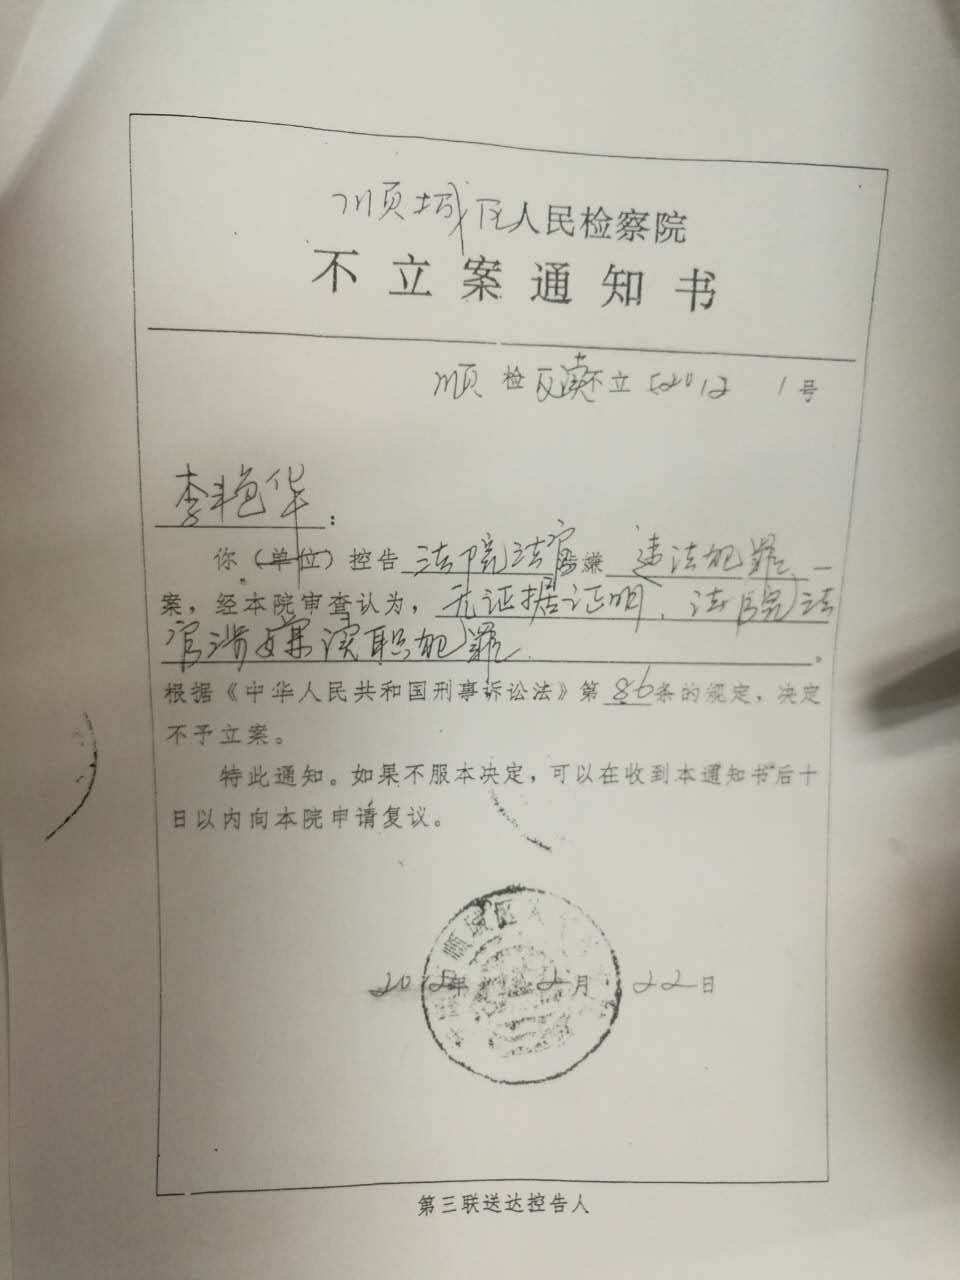 顺城区人民检察院
不立案通知书
顺检反渎不立〔2012 1号
李艳华:
你(单位)控告法院法官涉嫌违法犯罪、一
案,经本院审查认为,无证据证明、法院法
官涉嫌渎职犯罪。
根据《中华人民共和国刑事诉讼法》第86条的规定,决定
不予立案。
特此通知。如果不服本决定,可以在收到本通知书后十
日以内向本院申请复议。
顺城区人
2012年 2月22日
第三联送达控告人